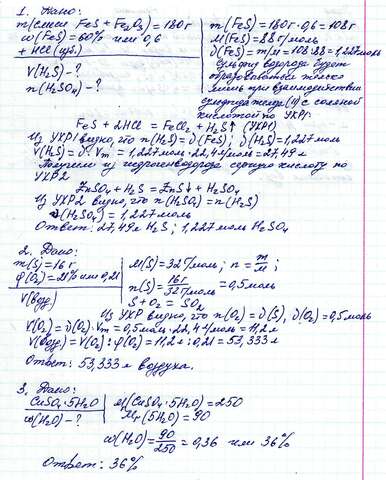 1. Дано:
m(смеси FeS + Fe₂O₃) = 180г
ω(FeS) = 60% или 0,6
+ HCl (изб.)
V(H₂S) - ?
n(H₂SO₄) - ?
m(FeS) = 180г · 0,6 = 108г
M(FeS) = 88г/моль
ν(FeS) = m/M = 108:88 = 1,227моль
Сульфид водорода будет
образовываться только
лишь при взаимодействии
сульфида железа (II) с соляной
кислотой по УХР1:
FeS + 2HCl = FeCl₂ + H₂S↑ (УХР1)
Из УХР1 видно, что n(H₂S) = ν(FeS); ν(H₂S) = 1,227моль
V(H₂S) = ν · Vm = 1,227моль · 22,4л/моль = 27,49л
Получаем из сероводорода серную кислоту по
УХР2
ZnSO₄ + H₂S = ZnS↓ + H₂SO₄
Из УХР2 видно, что n(H₂SO₄) = n(H₂S)
ν(H₂SO₄) = 1,227моль
Ответ: 27,49л H₂S; 1,227моль H₂SO₄
2. Дано:
m(S) = 16г
φ(O₂) = 21% или 0,21
V(возд)
M(S) = 32г/моль; n = m/M;
n(S) = 16г/32г/моль = 0,5моль
S + O₂ = SO₂
Из УХР видно, что n(O₂) = ν(S), ν(O₂) = 0,5моль
V(O₂) = ν(O₂) · Vm = 0,5моль · 22,4л/моль = 11,2л
V(возд) = V(O₂) : φ(O₂) = 11,2л : 0,21 = 53,333л
Ответ: 53,333л воздуха.
3. Дано:
CuSO₄ · 5H₂O
ω(H₂O) - ?
M(CuSO₄ · 5H₂O) = 250
Mr(5H₂O) = 90
ω(H₂O) = 90/250 = 0,36 или 36%
Ответ: 36%